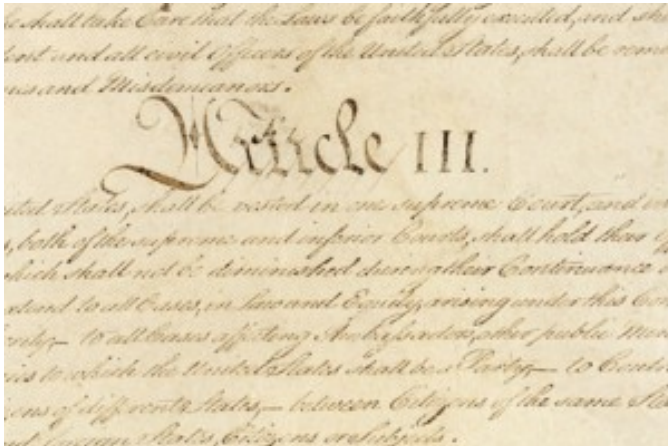 he shall take Care that the Laws be faithfully executed, and sha
dent and all civil Officers of the United States, shall be remo
mes and Misdemeanors.
Article III.
ited States, shall be vested in one supreme Court, and in
s, both of the supreme and inferior Courts, shall hold their
which shall not be diminished during their Continuance
extend to all Cases, in Law and Equity, arising under this Con
hority;— to all Cases affecting Ambassadors, other public Min
sies to which the United States shall be a Party;— to Contr
zens of different States,— between Citizens of the same Sta
and foreign States, Citizens or Subjects.